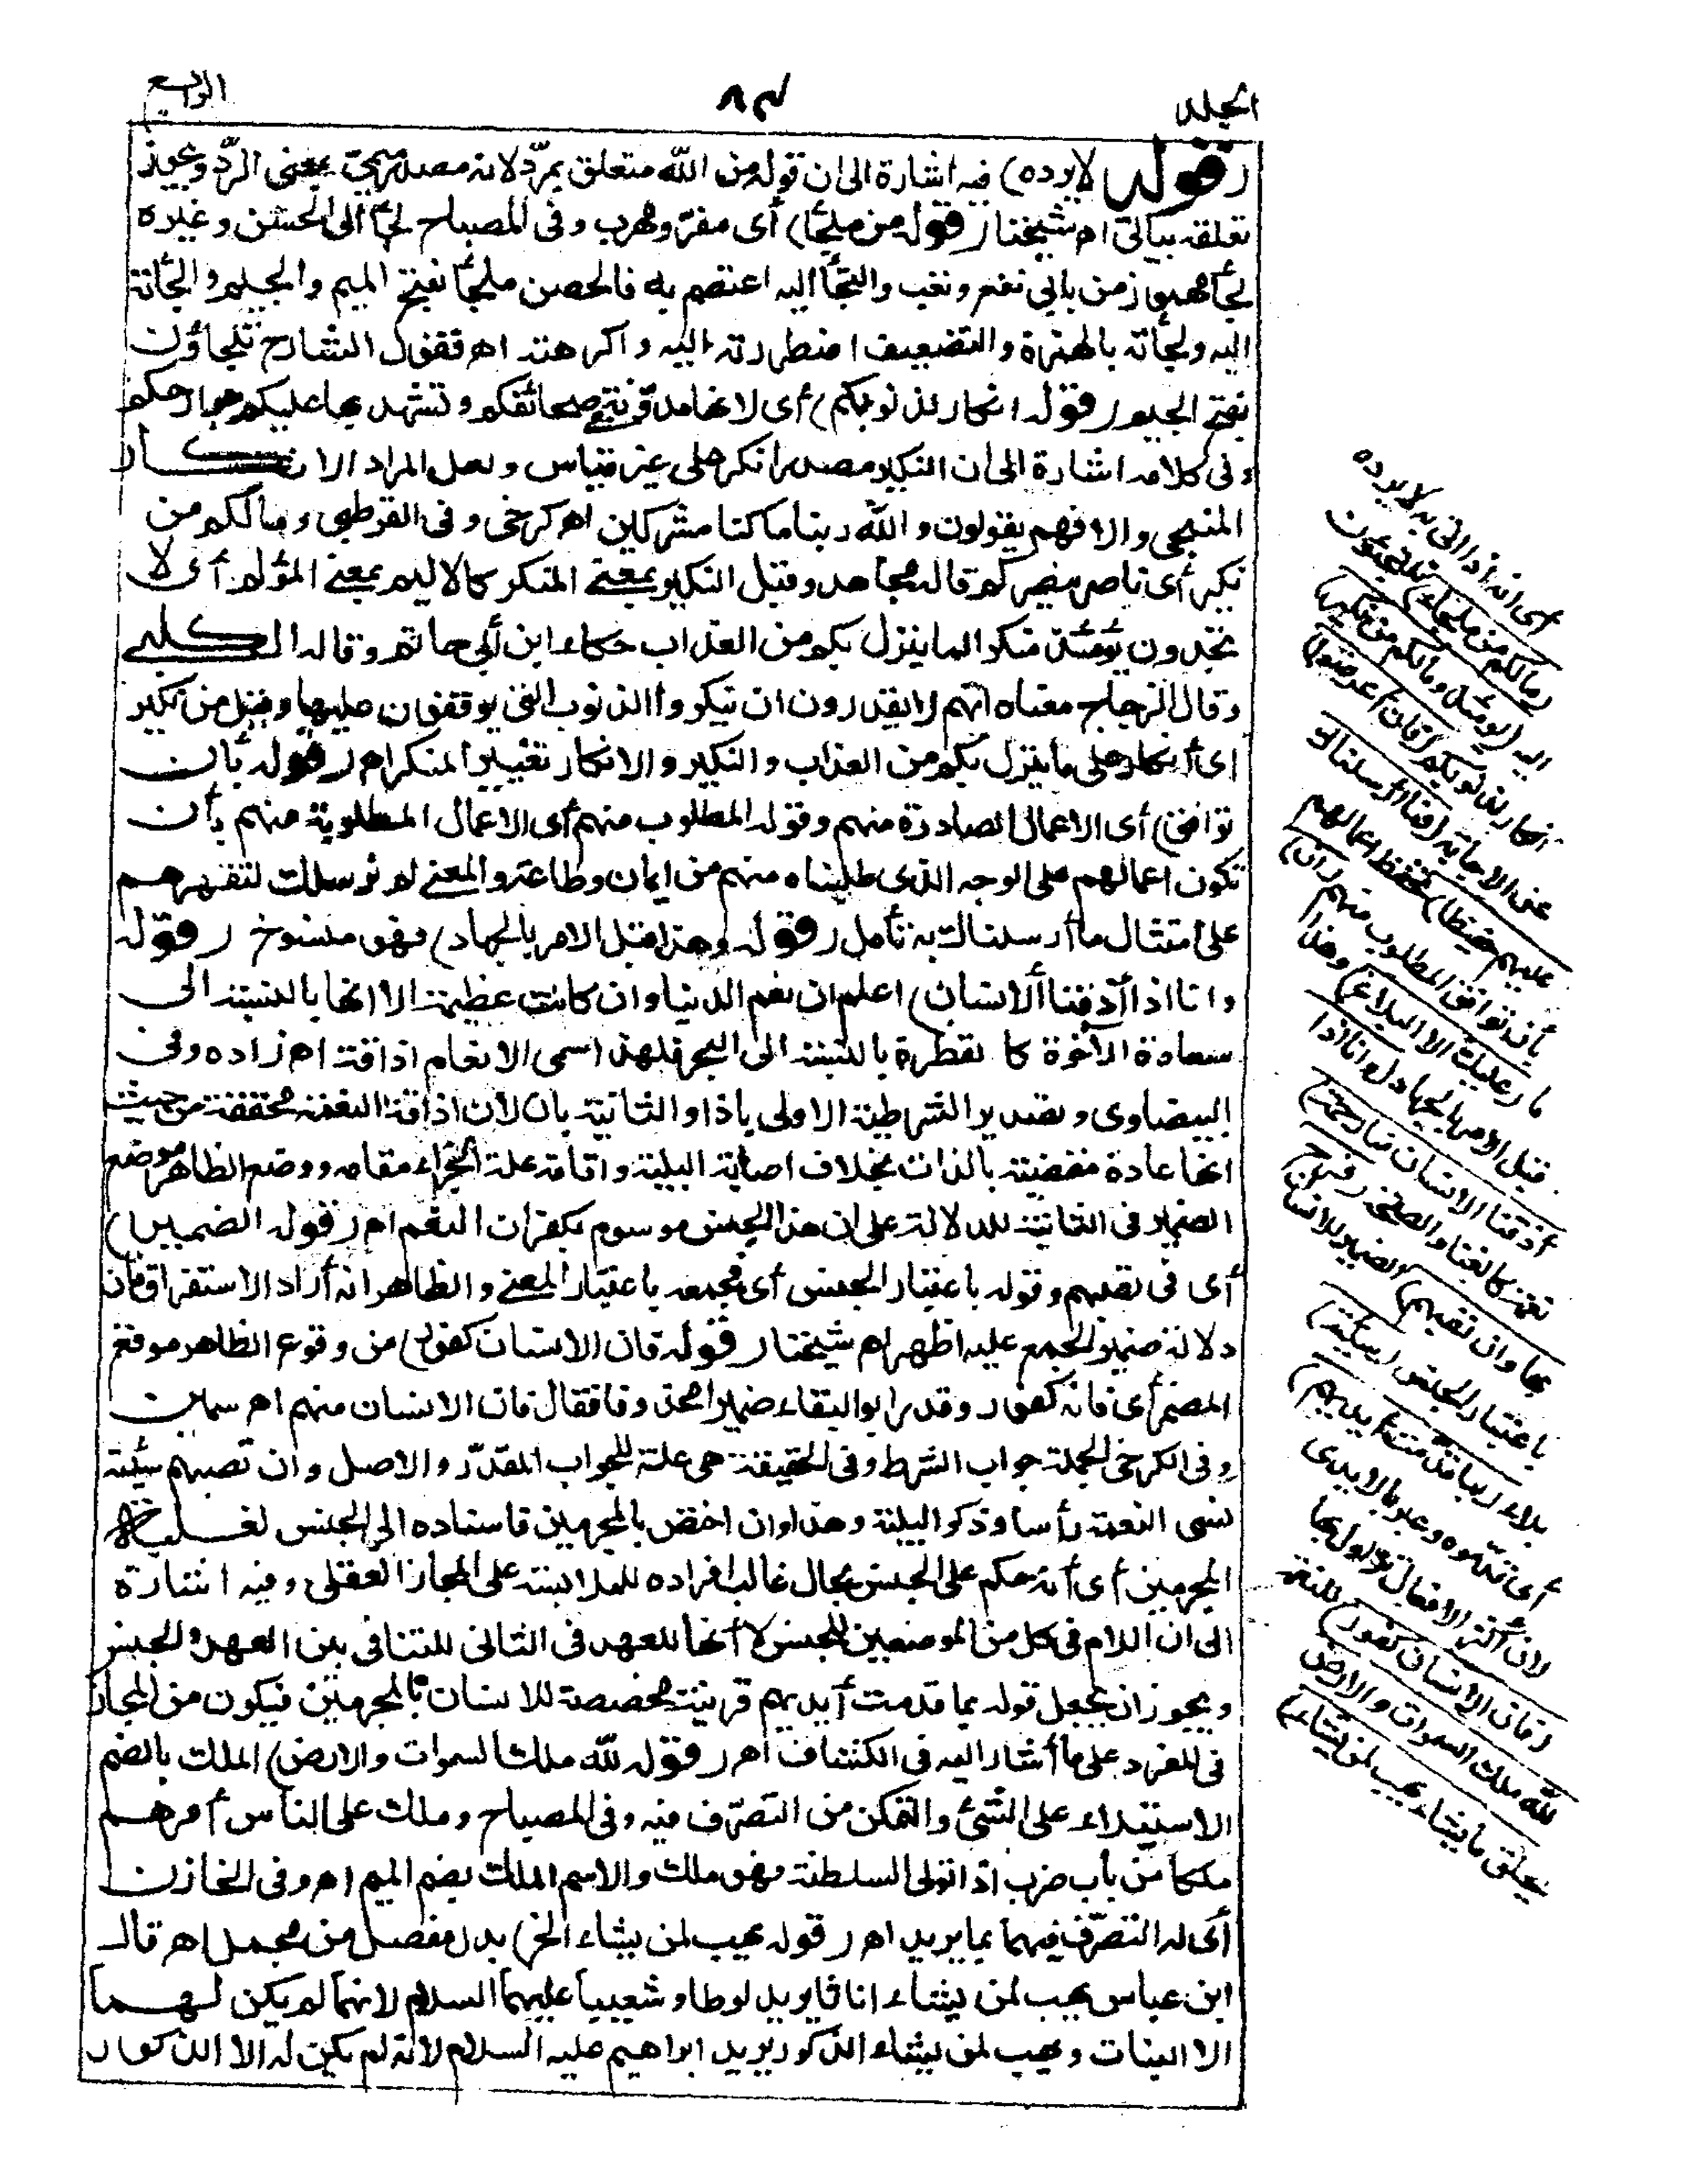 الجلد
٨٣
الرابع
(قوله لا يرده) فيه اشارة الى ان قوله من الله متعلق بمردّ لانه مصدر ميمي بمعنى الردّ ويجوز
تعلقه بيأتي اه شيخنا (قوله من ملجأ) أى مفرّ ومهرب وفى المصباح لجأ الى الحسن وغيره
لجأ مهموز من بابي نفع وتعب والتجأ اليه اعتصم به فالحصن ملجأ بفتح الميم والجيم وألجأته
اليه ولجأته بالهمزة والتضعيف اضطررته اليه واكرهته اه فقول الشارح تلجاؤن
بفتح الجيم (قوله انكار لذنوبكم) أى لانها مدوّنة في صحائفكم وتشهد بها عليكم جوارحكم
وفى كلامه اشارة الى ان النكير مصدر انكر على غير قياس ولعل المراد الانكار
المنجي والا فهم يقولون والله ربنا ما كنا مشركين اهـ كرخى وفى القرطبي ومالكم من
نكير أى ناصر ينصركم قاله مجاهد وقيل النكير بمعنى المنكر كالاليم بمعنى المؤلم أى لا
تجدون يومئذ منكرا لما ينزل بكم من العذاب حكاه ابن أبي حاتم وقاله الكلبي
وقال الزجاج معناه انهم لا يقدرون ان ينكروا الذنوب التي يوقفون عليها وقيل من نكير
اى أنكار على ما ينزل بكم من العذاب والنكير والانكار تغيير المنكر اه (قوله بأن
توافق) أى الاعمال الصادرة منهم وقوله المطلوب منهم أى الاعمال المطلوبة منهم بأن
تكون اعمالهم على الوجه الذى طلبناه منهم من ايمان وطاعة والمعنى لم نرسلك لتقهرهم
على امتثال ما أرسلناك به تأمل (قوله وهذا قبل الامر بالجهاد) فهو منسوخ (قوله
وانا اذا أذقنا ألانسان) اعلم ان نعم الدنيا وان كانت عظيمة الا انها بالنسبة الى
سعادة الآخرة كالقطرة بالنسبة الى البحر فلهذا سمى الانعام اذاقة اه زاده وفى
البيضاوى وتصدير الشرطية الاولى باذا والثانية بان لأن اذاقة النعمة محققة من حيث
انها عادة مقضية بالذات بخلاف اصابة البلية واقامة علة الجزاء مقامه ووضع الظاهر موضع
الضمير فى الثانية للدلالة على ان هذا الجنس موسوم بكفران النعم اه (قوله الضمير)
أى فى تصبهم وقوله باعتبار الجنس أى فجمعه باعتبار المعنى والظاهر انه أراد الاستغراق فان
دلالة ضمير الجمع عليه اظهر اه شيخنا (قوله فان الانسان كفور) من وقوع الظاهر موقع
المضمر أى فانه كفور وقدر ابو البقاء ضميرا محذوفا فقال فان الانسان منهم اه سمين
وفى الكرخي الجملة جواب الشرط وفى الحقيقة هى علة للجواب المقدّر والاصل وان تصبهم سيئة
نسى النعمة رأسا وذكر البلية وهذا وان اختص بالمجرمين فاسناده الى الجنس لغلبة
المجرمين أى أنه حكم على الجنس بحال غالب افراده للملابسة على المجاز العقلى وفيه اشارة
الى ان اللام فى كل من الموضعين للجنس لا أنها للعهد فى الثانى للتنافى بين العهد والجنس
ويجوز ان يجعل قوله بما قدمت أيديهم قرينة مخصصة للانسان بالمجرمين فيكون من المجاز
فى المفرد على ما أشار اليه فى الكشاف اهـ (قوله لله ملك السموات والارض) الملك بالضم
الاستيلاء على الشئ والتمكن من التصرّف فيه وفى المصباح وملك على الناس أمرهم
ملكا من باب ضرب اذا تولى السلطنة فهو ملك والاسم الملك بضم الميم اه وفى الخازن
أى له التصرّف فيهما بما يريد اه (قوله يهب لمن يشاء الخ) بدل مفصل من مجمل اه قال
ابن عباس يهب لمن يشاء اناثا يريد لوطا وشعيبا عليهما السلام لانهما لم يكن لهما
الا البنات ويهب لمن يشاء الذكور يريد ابراهيم عليه السلام لانه لم يكن له الا الذكور
أى انه اذا اتى به لا يرده
(مالكم من ملجاء) تلجئون
اليه (يومئذ ومالكم من نكير)
انكار لذنوبكم (فان أعرضوا)
عن الاجابة (فما أرسلناك
عليهم حفيظا) تحفظ اعمالهم
بأن توافق المطلوب منهم (ان)
ما (عليك الا البلاغ) وهذا
قبل الامر بالجهاد (وانا اذا
أذقنا الانسان منا رحمة)
نعمة كالغنا والصحة (فرح
بها وان تصبهم) الضمير للانسان
باعتبار الجنس (سيئة)
بلاء (بما قدّمت أيديهم)
أى قدّموه وعبر بالايدى
لان أكثر الافعال تزاول بها
(فان الانسان كفور) للنعمة
(لله ملك السموات والارض
يخلق ما يشاء يهب لمن يشاء)